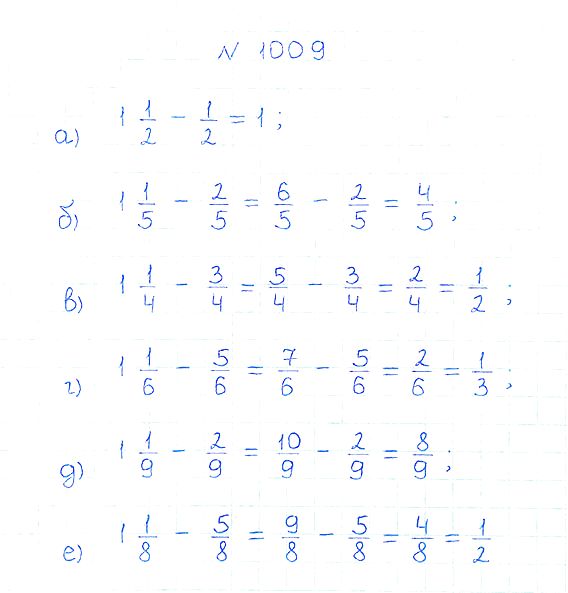 N 1009
а) 1 1/2 - 1/2 = 1 ;
б) 1 1/5 - 2/5 = 6/5 - 2/5 = 4/5 ;
в) 1 1/4 - 3/4 = 5/4 - 3/4 = 2/4 = 1/2 ;
г) 1 1/6 - 5/6 = 7/6 - 5/6 = 2/6 = 1/3 ;
д) 1 1/9 - 2/9 = 10/9 - 2/9 = 8/9 ;
е) 1 1/8 - 5/8 = 9/8 - 5/8 = 4/8 = 1/2